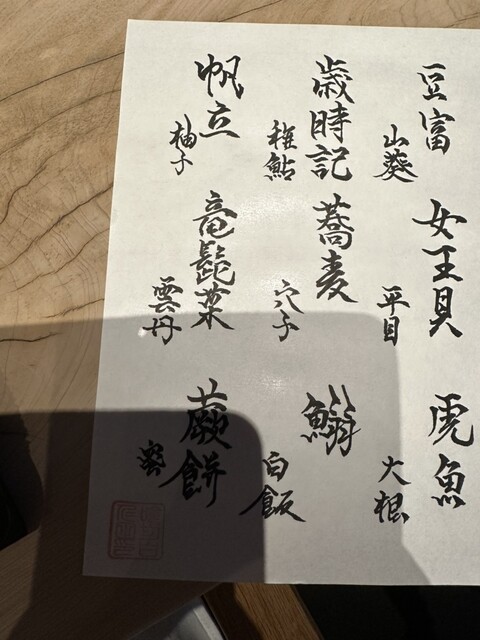 豆富 女王貝 虎魚
山葵 平目 大根
歳時記 蕎麦 鰯
稚鮎 穴子 白飯
帆立 竜髭菜 蕨餅
柚子 雲丹 蜜